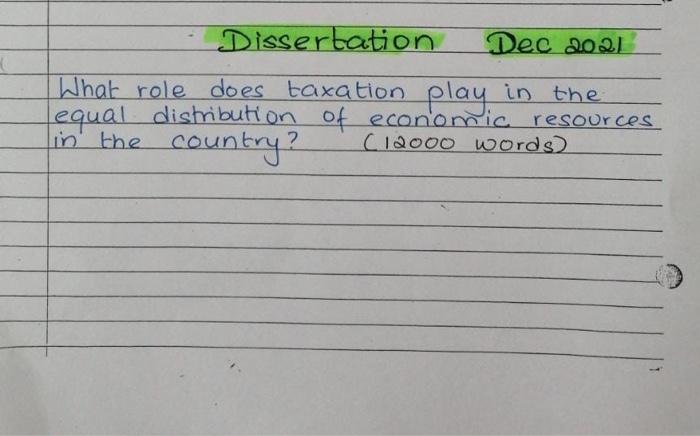 Dissertation Dec 2021
What role does taxation play in the
equal distribution of economic resources
in the country? (12000 words)